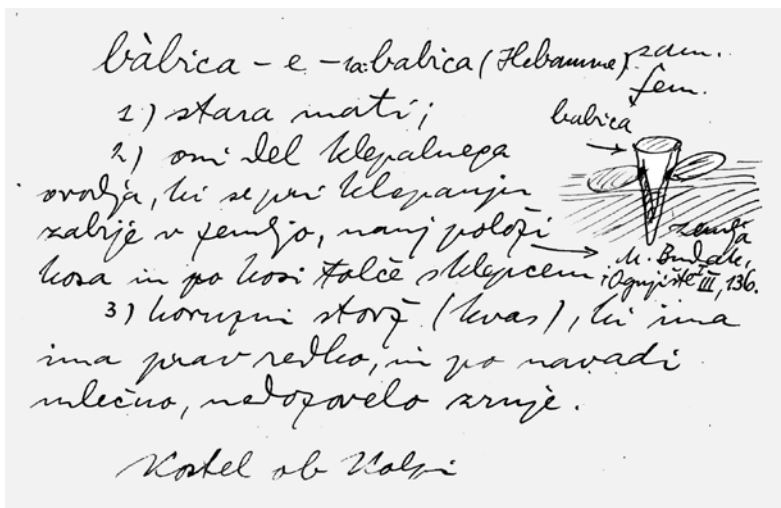 bàbica - e - babica (Hebamme) sam.
fem.
1) stara mati;
babica
2) oni del klepalnega
orodja, ki se pri klepanju
zabije v zemljo, nanj položi
zemlja
kosa in po kosi tolče s klepcem;
M. Budak,
Ognjište III, 136.
3) koruzni storž (kvas), ki ima
ima prav redko, in po navadi
mlečno, nedozorelo zrnje.
Kostel ob Kolpi